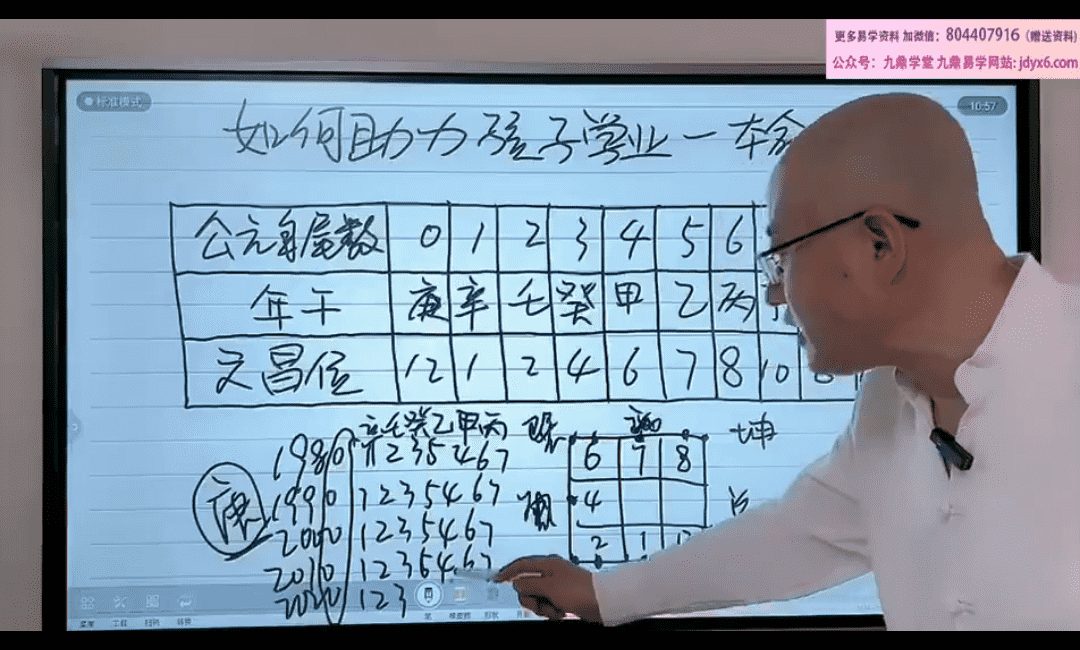 更多易学资料 加微信：804407916（赠送资料）
公众号：九鼎学堂 九鼎易学网站: jdyx6.com
标准模式
10:57
如何助力孩子学业一本
公元年尾数 0 1 2 3 4 5 6
年干 庚 辛 壬 癸 甲 乙 丙
文昌位 12 1 2 4 6 7 8 10
辛壬癸乙甲丙
1980 1 2 3 5 4 6 7
1990 1 2 3 5 4 6 7
庚
2000 1 2 3 5 4 6 7
2010 1 2 3 5 4 6 7
2020 1 2 3
坤
6 7 8
4
2 1